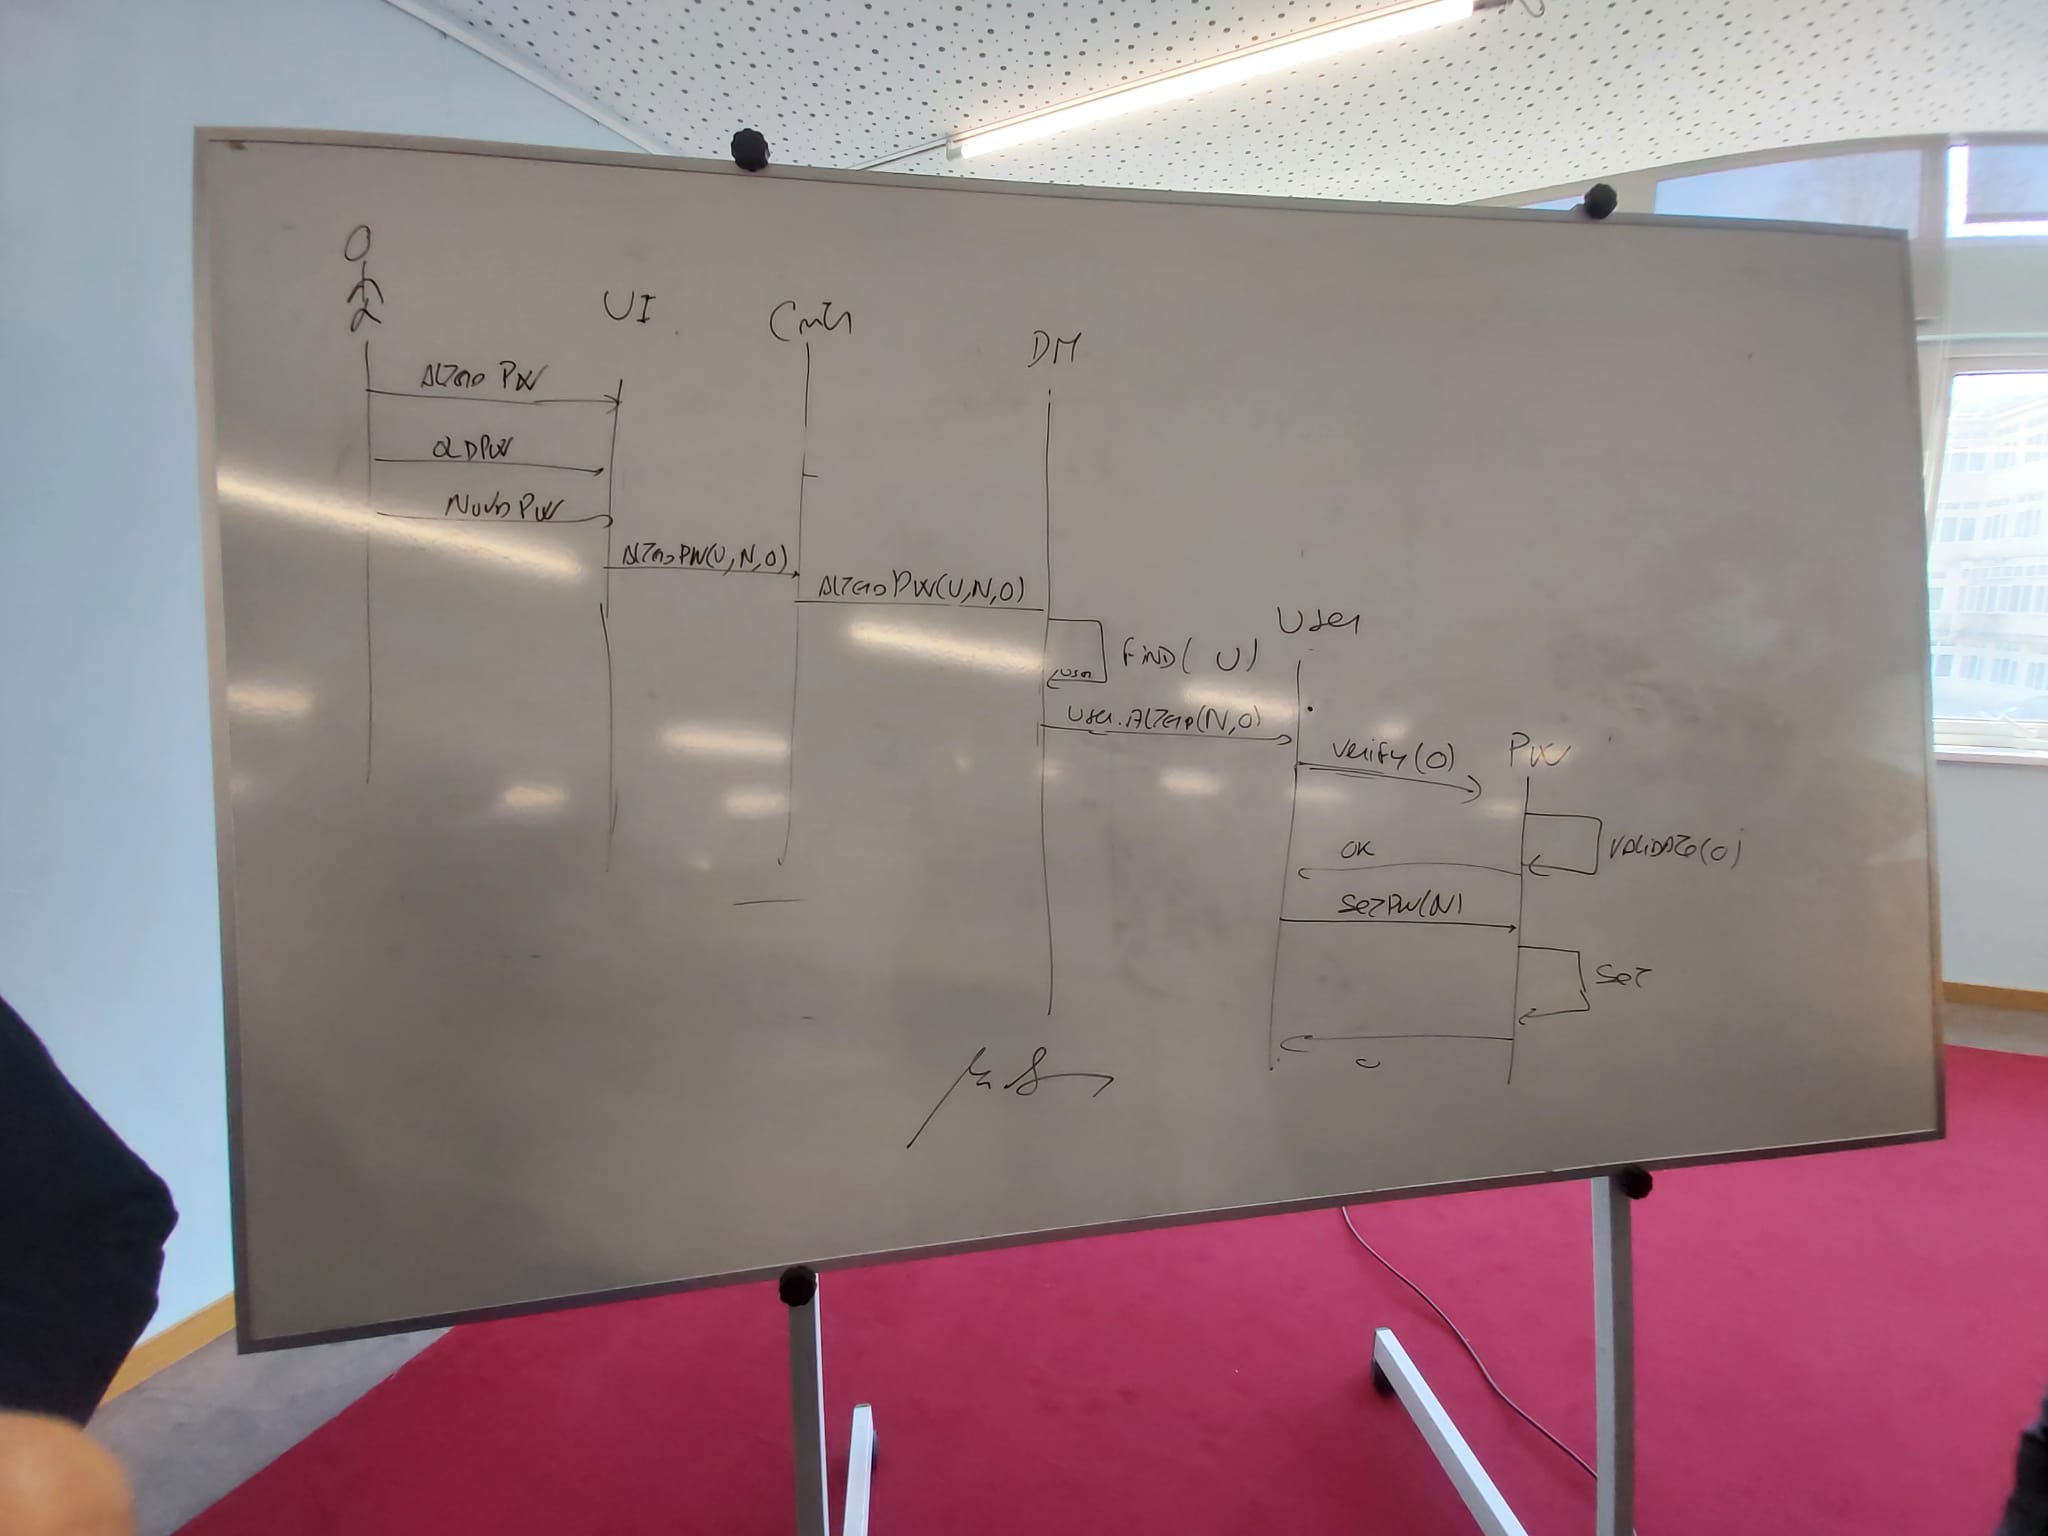 UI
Cntr
DM
Altera PW
OLDPW
Nova PW
Altera PW(U,N,O)
Altera PW(U,N,O)
User
FIND( U)
user
User.Altera(N,O)
verify(O)
PW
VALIDATE(O)
OK
SETPW(N)
SET